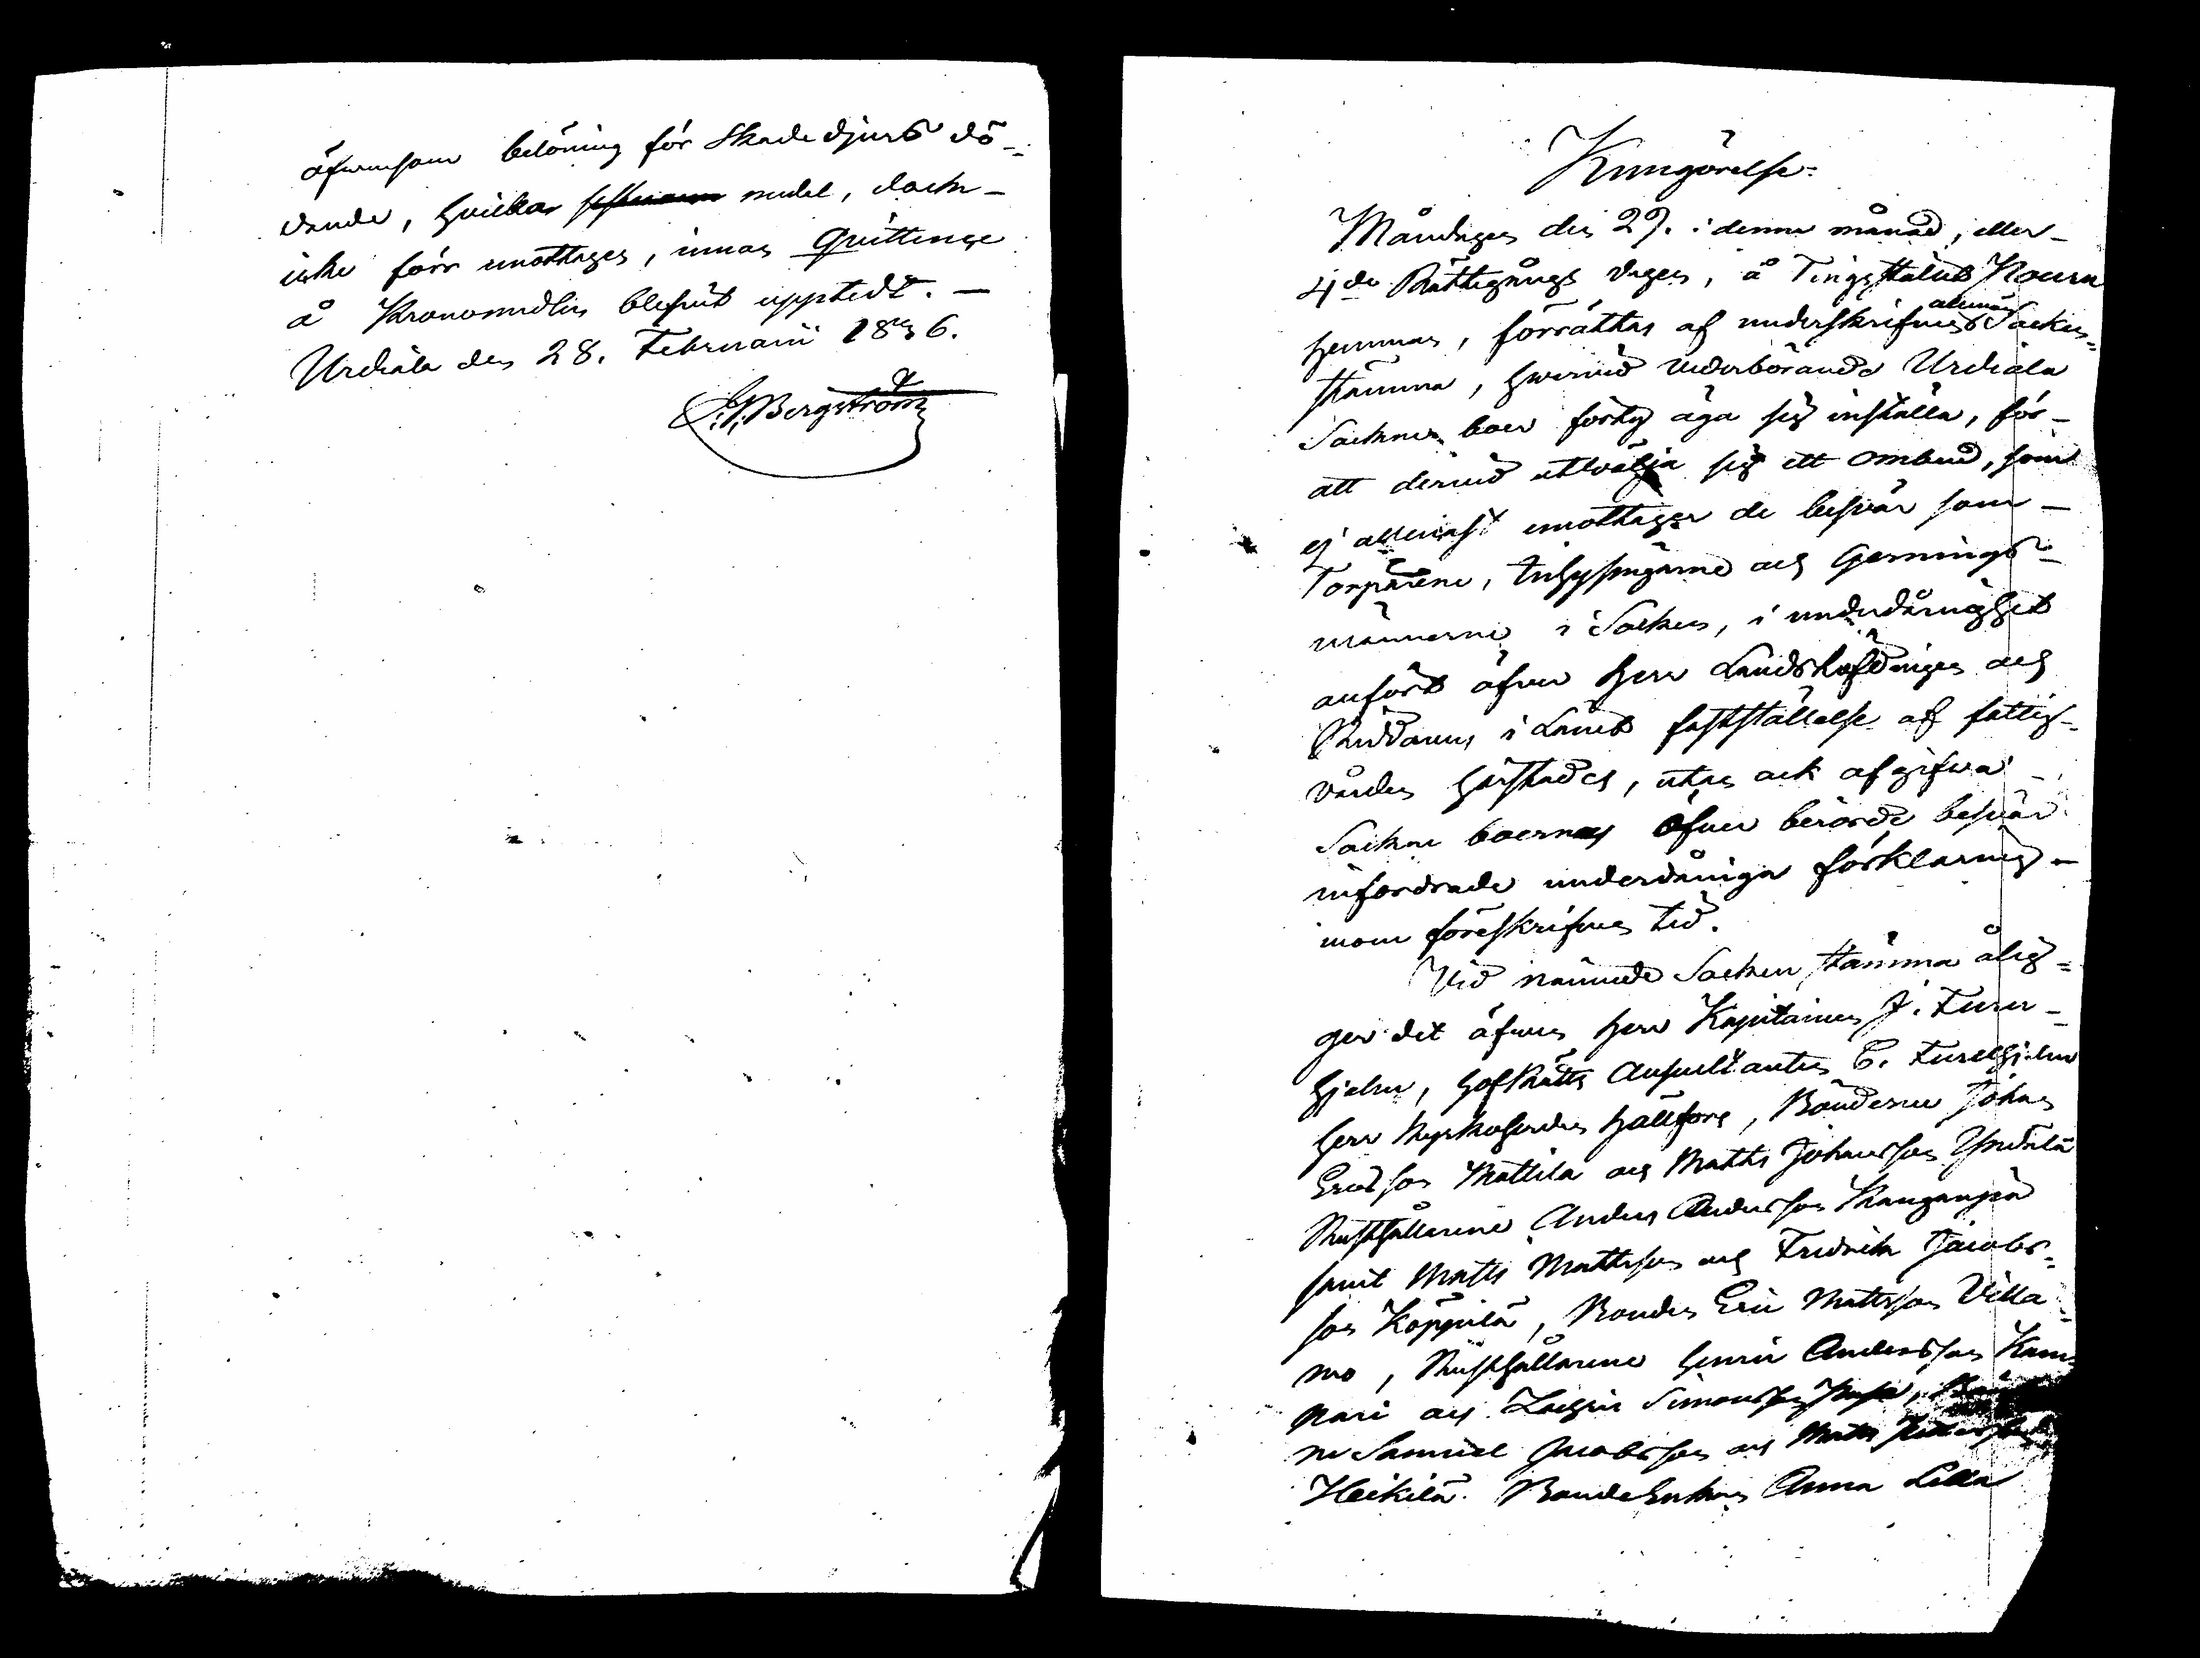 äfvensom belöning för Skadedjurs dö-
dande, hvilka medel, dock-
icke förr emottages, innan Quittence
å Kronomedlen blifvit upptedt. -
Urdiala den 28. Februarii 1836.
J. J. Bergström
Kungörelse.
Måndagen den 29. i denna månad, eller-
4de Rättegångs dagen, å Tingstället Nouru
hemman, förrättas af underskrifven allmän Socken-
stämma, hvarvid vederbörande Urdiala
Sockne boer förty äga sig inställa, för-
att dervid utvälja sig ett ombud, som
ej allenast emottager de besvär som-
Torparene, Inhysingarne och Gernings-
männerne i Socken, i underdånighet
anfört öfver Herr Landshöfdingen och
Riddarens i Länet fastställelse af fattig-
vården härstädes, utan ock afgifva
Sockne boernas öfver berörde besvär
infordrade underdåniga förklaring-
inom föreskrifven tid.
Vid nämnde Sockenstämma ålig-
ger det äfven Herr Kapitainen J. Furu-
hjelm, HofRätts Auscultanten C. Furuhjelm
Herr Kyrkoherden Hällfors, Bönderne Johan
Ericsson Mattila och Matts Johansson
Rusthållarene Anders Andersson Kanganpää
samt Matts Mattsson och Fredrik Jacobs-
son Köppilä, Bonden Eric Mattsson Villa-
mo, Rusthållarene Henric Andersson Kam-
pari och Zachris Simonsson
ne Samuel Jacobsson och Matts
Heikilä. Bonde Enkan Anna Lilla